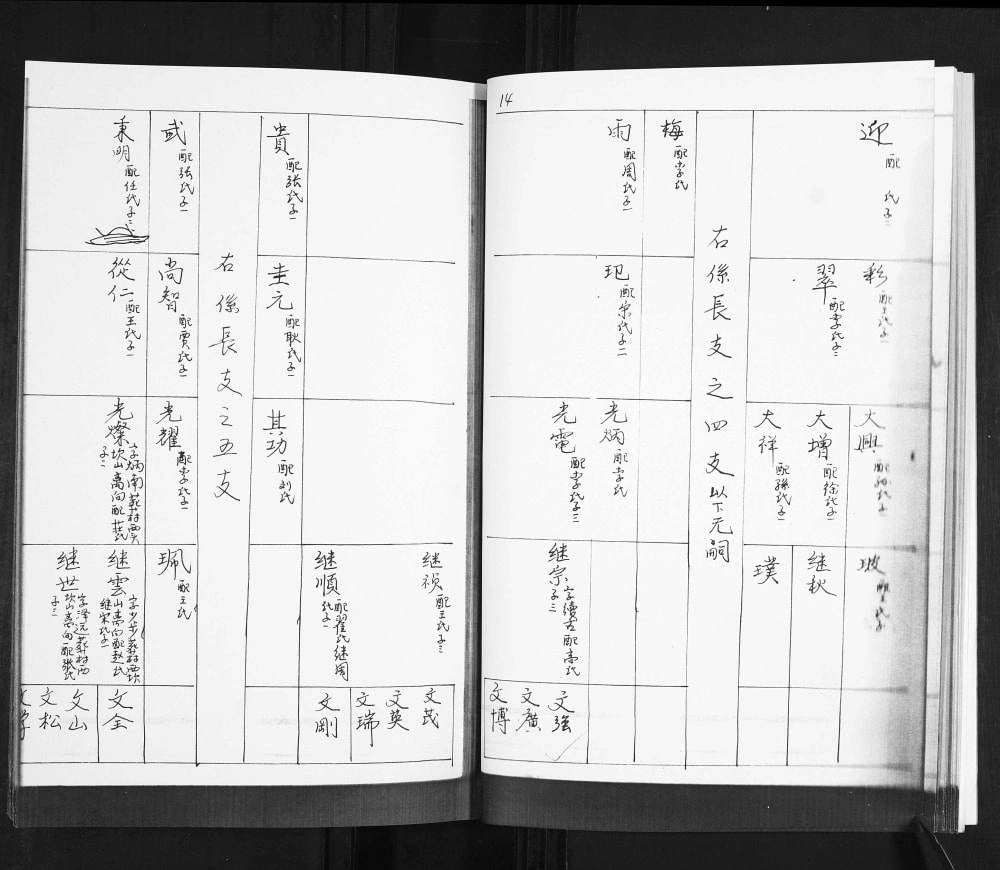 14
迎 配 氏子二
彩 配王氏子一
翠 配李氏子二
大興
大增 配徐氏子一
大祥 配孫氏子一
玻
继秋
璞
右係長支之四支以下元嗣
梅 配李氏
雨 配周氏子一
玘 配宋氏子二
光炳 配李氏
光電 配李氏子三
继宗 字續古配高氏
子三
文強
文廣
文博
貴 配張氏子一
圭元 配耿氏子一
其功 配刘氏
继祯 配王氏子三
继順 配翟氏继周
氏子一
文茂
文英
文瑞
文剛
右係長支之五支
或 配張氏子一
尚智 配賈氏子一
光耀 配李氏子一
珮 配王氏
秉明 配任氏子三
從仁 配王氏子一
光燦 字炳南葬村西
坎山离向配氏
子二
继雲 字步步葬村西坎
山离向配赵氏
继宋氏子一
继世 字泽远葬村西
坎山离向配張氏
子三
文全
文山
文松
文学